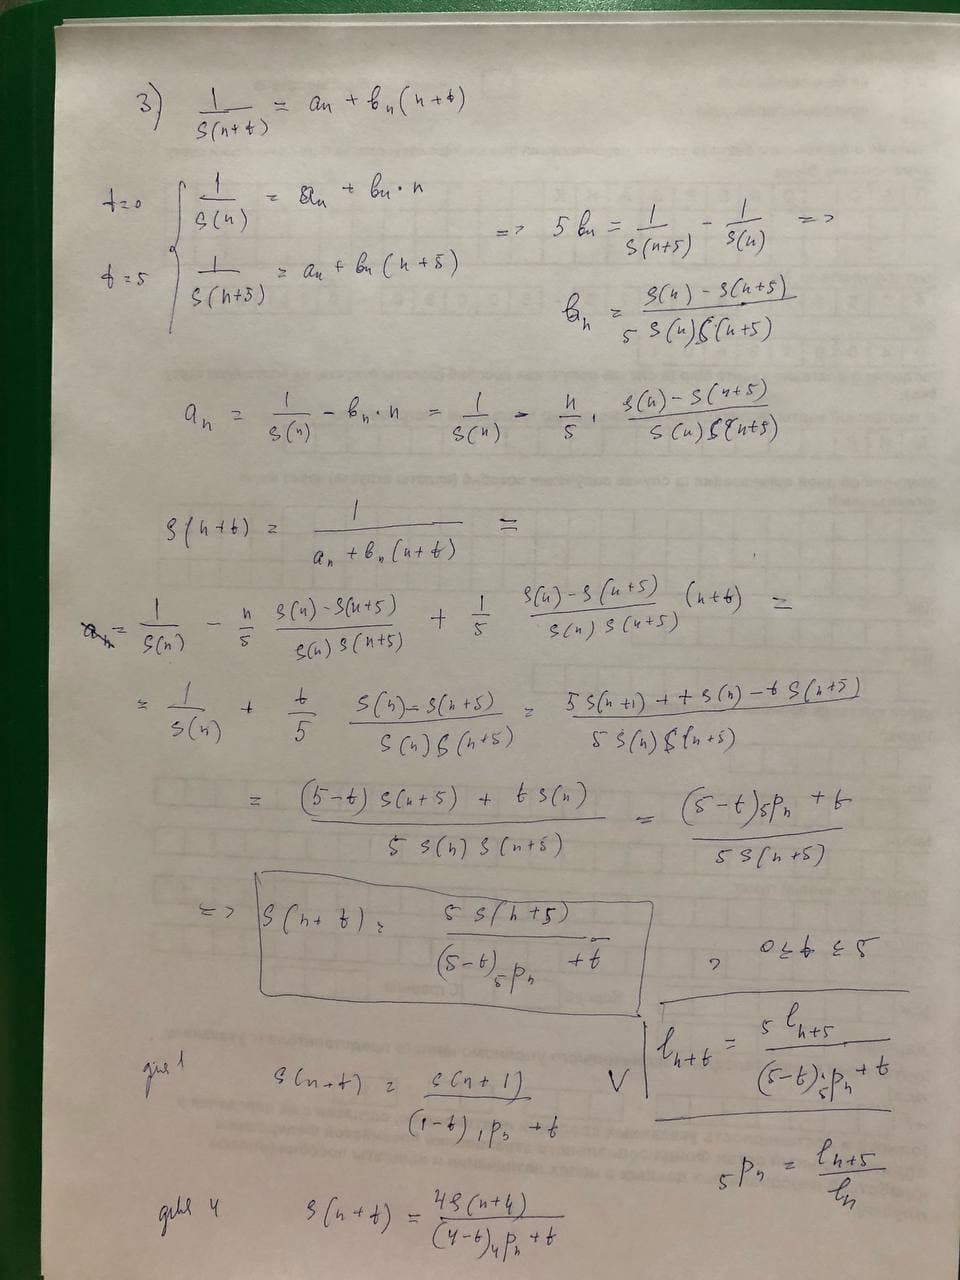 3) 1/S(n+t) = aₙ + bₙ(n+t)
t=0 { 1/S(n) = aₙ + bₙ·n
t=5 { 1/S(n+5) = aₙ + bₙ(n+5)
=> 5bₙ = 1/S(n+5) - 1/S(n) =>
bₙ = (S(n) - S(n+5))/(5 S(n)S(n+5))
aₙ = 1/S(n) - bₙ·n = 1/S(n) - n/5 · (S(n) - S(n+5))/(S(n)S(n+5))
S(n+t) = 1/(aₙ + bₙ(n+t)) =
= 1/S(n) - n/5 (S(n) - S(n+5))/(S(n)S(n+5)) + 1/5 (S(n) - S(n+5))/(S(n)S(n+5)) (n+t) =
= 1/S(n) + t/5 (S(n) - S(n+5))/(S(n)S(n+5)) = (5S(n+1) + tS(n) - tS(n+5))/(5S(n)S(n+5))
= ((5-t)S(n+5) + tS(n))/(5S(n)S(n+5)) = ((5-t)₅pₙ + t)/(5S(n+5))
=> S(n+t) = 5S(n+5)/((5-t)₅pₙ + t)
5 > t > 0
lₙ₊ₜ = 5lₙ₊₅/((5-t)·₅pₙ + t)
для 1 S(n+t) = S(n+1)/((1-t)₁pₙ + t) V
₅pₙ = lₙ₊₅/lₙ
для 4 S(n+t) = 4S(n+4)/((4-t)₄pₙ + t)